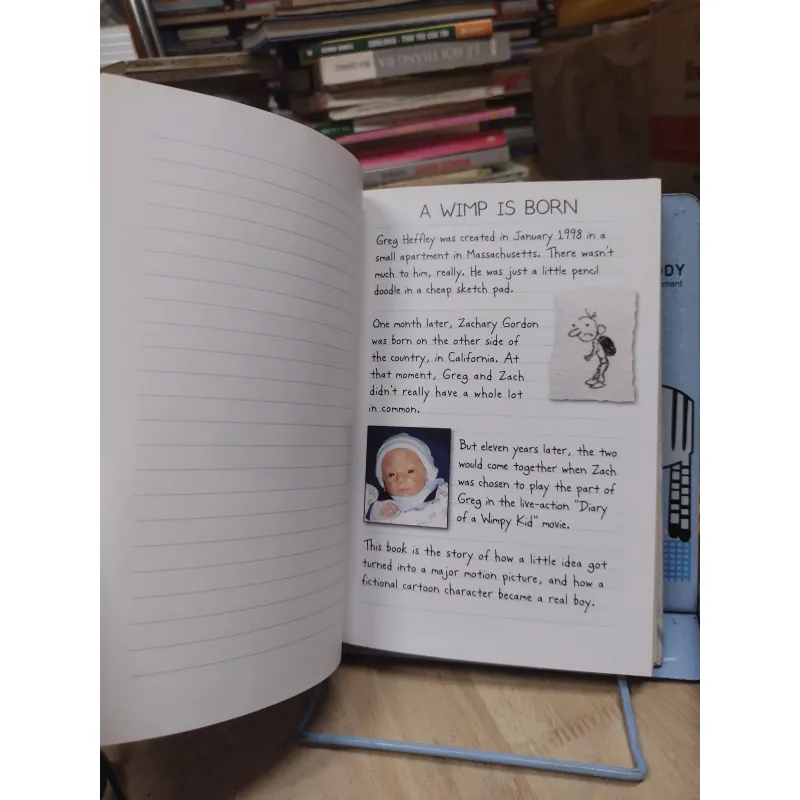 LỄ HỘI THÁNG BA
A WIMP IS BORN
Greg Heffley was created in January 1998 in a
small apartment in Massachusetts. There wasn't
much to him, really. He was just a little pencil
doodle in a cheap sketch pad.
One month later, Zachary Gordon
was born on the other side of
the country, in California. At
that moment, Greg and Zach
didn't really have a whole lot
in common.
But eleven years later, the two
would come together when Zach
was chosen to play the part of
Greg in the live-action "Diary
of a Wimpy Kid" movie.
This book is the story of how a little idea got
turned into a major motion picture, and how a
fictional cartoon character became a real boy.